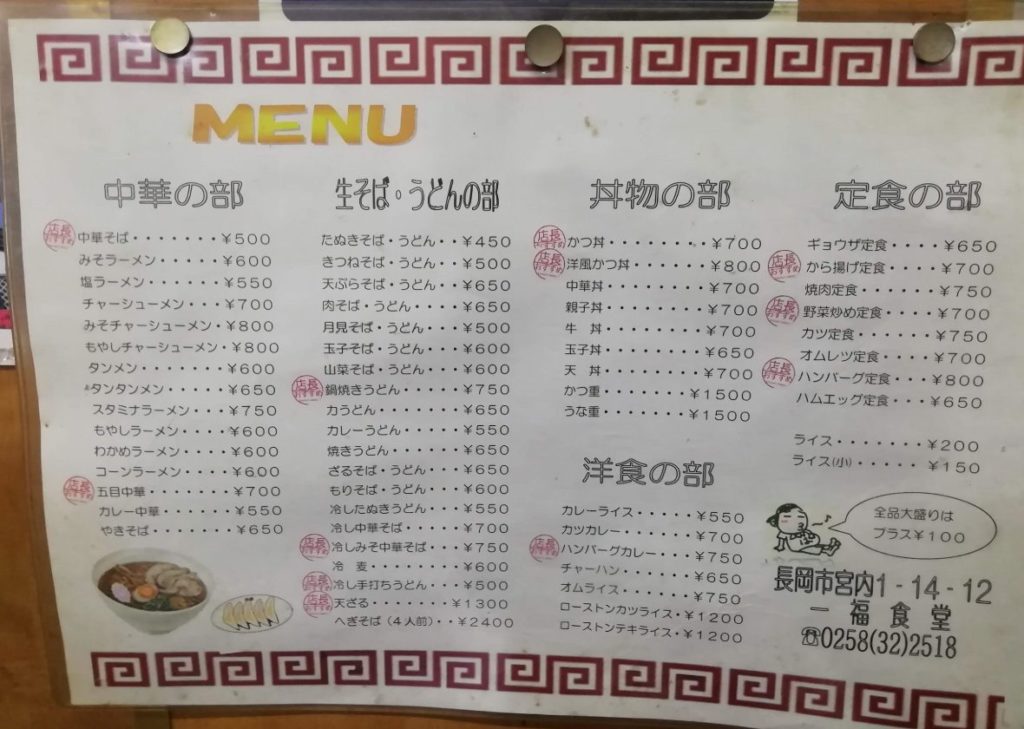 MENU
中華の部
店長おすすめ 中華そば・・・・・・・￥500
みそラーメン・・・・・￥600
塩ラーメン・・・・・・￥550
チャーシューメン・・・￥700
みそチャーシューメン・￥800
もやしチャーシューメン・￥800
タンメン・・・・・・・￥600
タンタンメン・・・・・￥650
スタミナラーメン・・・￥750
もやしラーメン・・・・￥600
わかめラーメン・・・・￥600
コーンラーメン・・・・￥600
店長おすすめ 五目中華・・・・・・・￥700
カレー中華・・・・・・￥550
やきそば・・・・・・・￥650
生そば・うどんの部
たぬきそば・うどん・・￥450
きつねそば・うどん・・￥500
天ぷらそば・うどん・・￥650
肉そば・うどん・・・・￥650
月見そば・うどん・・・￥500
玉子そば・うどん・・・￥600
山菜そば・うどん・・・￥600
店長おすすめ 鍋焼きうどん・・・・・￥750
力うどん・・・・・・・￥650
カレーうどん・・・・・￥550
焼きうどん・・・・・・￥650
ざるそば・うどん・・・￥650
もりそば・うどん・・・￥600
冷したぬきうどん・・・￥550
冷し中華そば・・・・・￥700
店長おすすめ 冷しみそ中華そば・・・￥750
冷 麦・・・・・・・￥600
店長おすすめ 冷し手打ちうどん・・・￥500
店長おすすめ 天ざる・・・・・・・￥1300
へぎそば（４人前）・・￥2400
丼物の部
店長おすすめ かつ丼・・・・・・・￥700
店長おすすめ 洋風かつ丼・・・・・￥800
中華丼・・・・・・・￥700
親子丼・・・・・・・￥700
牛 丼・・・・・・・￥700
玉子丼・・・・・・・￥650
天 丼・・・・・・・￥700
かつ重・・・・・・￥1500
うな重・・・・・・￥1500
洋食の部
カレーライス・・・・・￥550
カツカレー・・・・・・￥700
店長おすすめ ハンバーグカレー・・・￥750
チャーハン・・・・・・￥650
オムライス・・・・・・￥750
ローストンカツライス・￥1200
ローストンテキライス・￥1200
定食の部
ギョウザ定食・・・・￥650
店長おすすめ から揚げ定食・・・・￥700
焼肉定食・・・・・・￥750
店長おすすめ 野菜炒め定食・・・・￥700
カツ定食・・・・・・￥750
オムレツ定食・・・・￥700
店長おすすめ ハンバーグ定食・・・￥800
ハムエッグ定食・・・￥650
ライス・・・・・・・￥200
ライス(小)・・・・・￥150
全品大盛りは
プラス￥100
長岡市宮内1-14-12
一福食堂
☎0258(32)2518